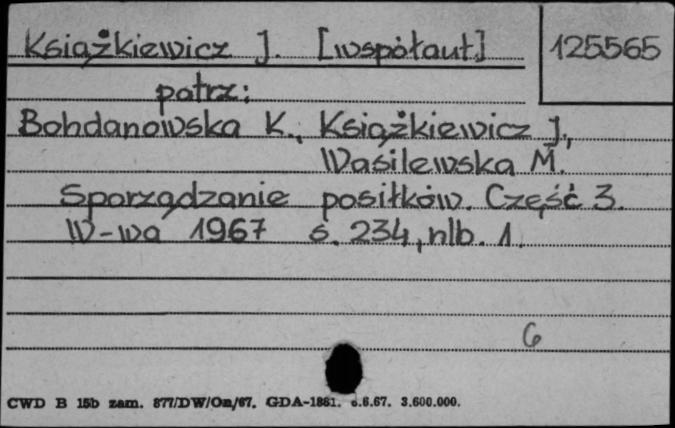 Książkiewicz J. [współaut] 125565
patrz:
Bohdanowska K., Książkiewicz J.,
Wasilewska M.
Sporządzanie posiłków. Część 3.
W-wa 1967 s. 234, nlb. 1.
6
CWD B 15b zam. 877/DW/Om/67. GDA-1881. 6.67. 3.600.000.